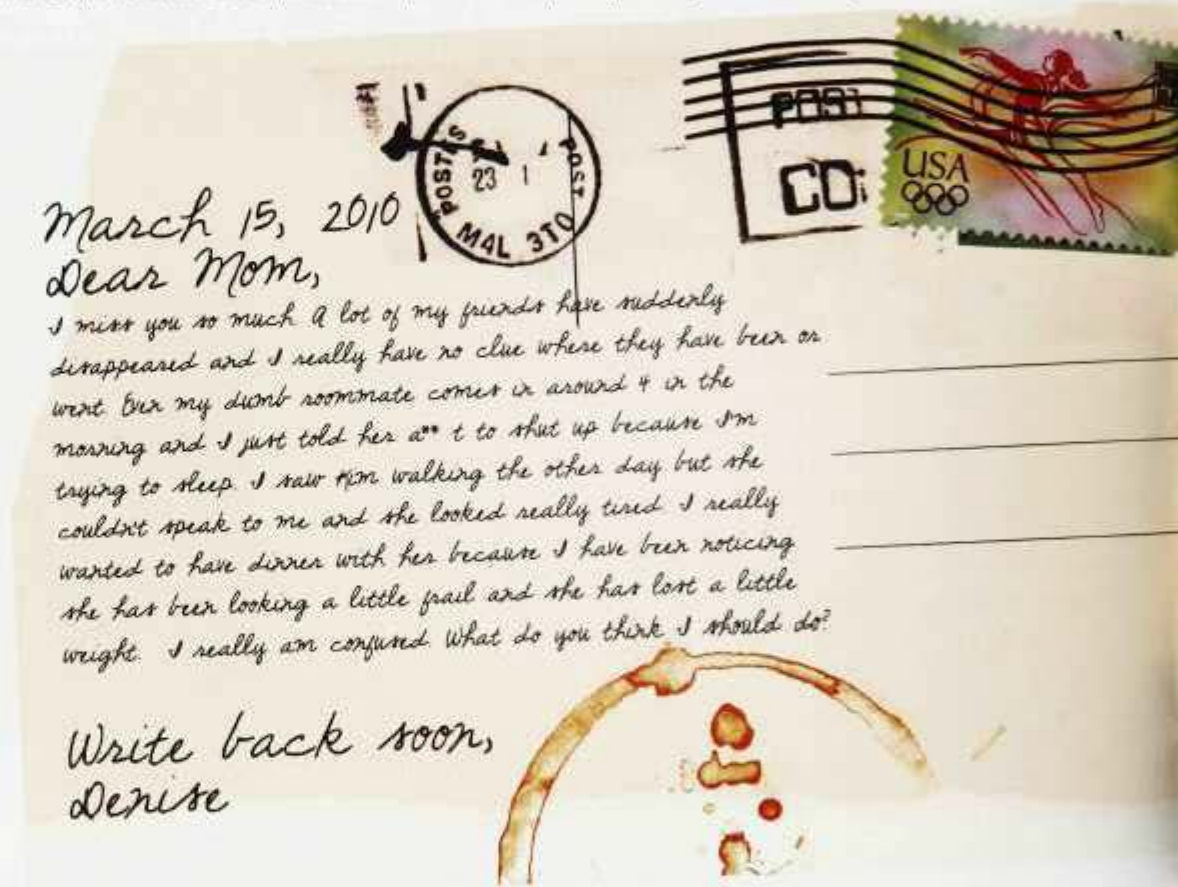 POSTES
POST
23 1
M4L 3T0
POST
CD
USA
March 15, 2010
Dear Mom,
I miss you so much A lot of my friends have suddenly
disappeared and I really have no clue where they have been or
went Even my dumb roommate comes in around 4 in the
morning and I just told her a** t to shut up because I'm
trying to sleep I saw Kim walking the other day but she
couldn't speak to me and she looked really tired I really
wanted to have dinner with her because I have been noticing
she has been looking a little frail and she has lost a little
weight. I really am confused What do you think I should do?
Write back soon,
Denise